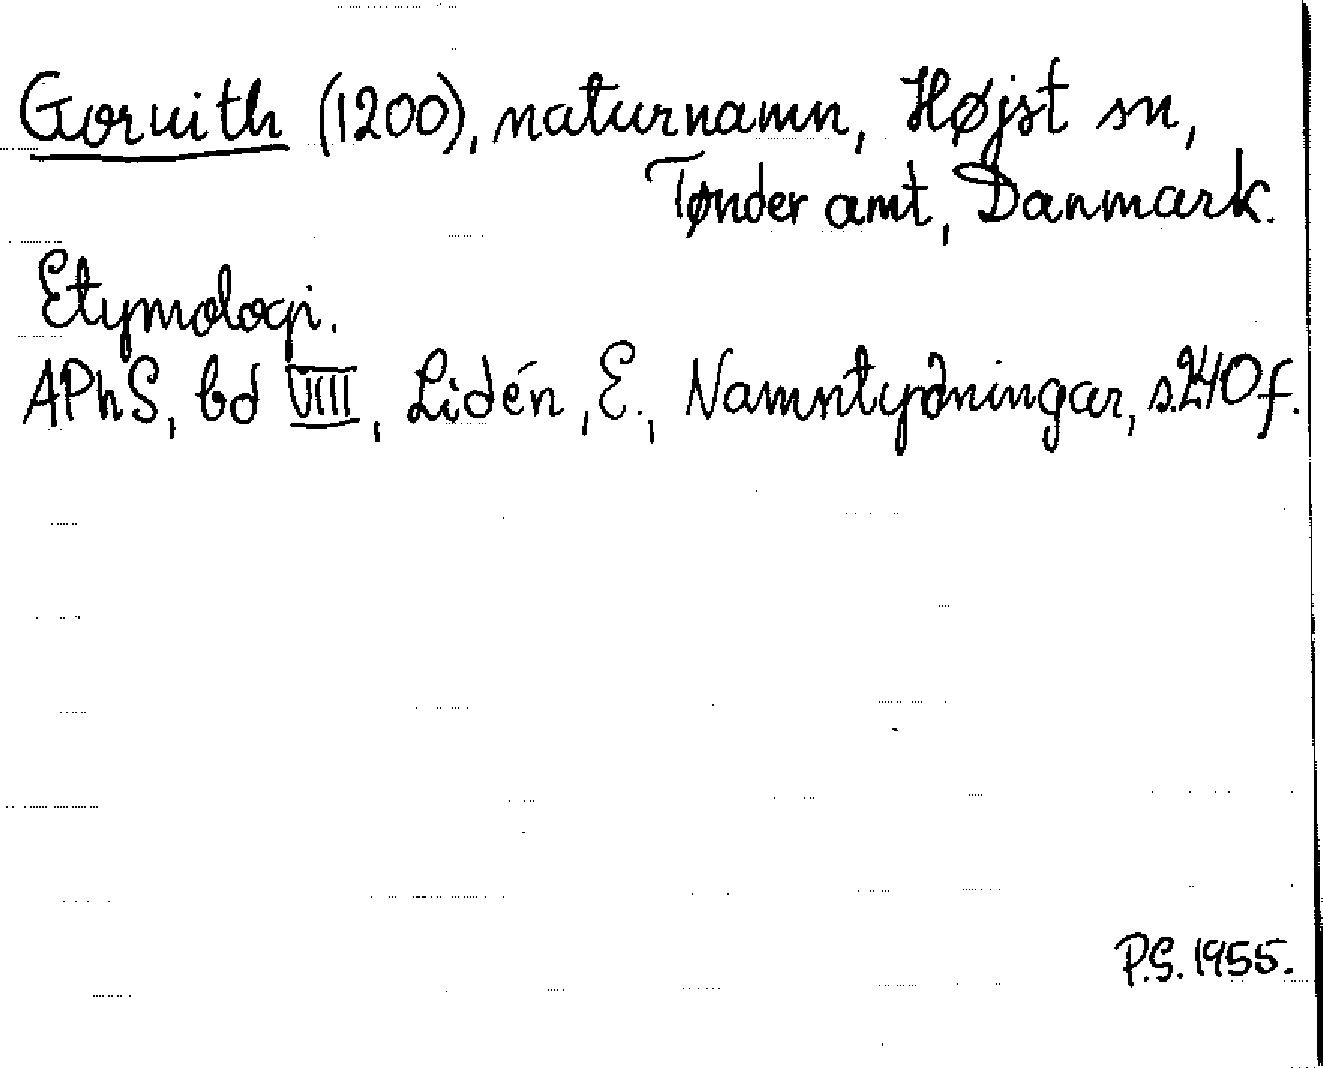 Goruith (1200), naturnamn, Højst sn,
Tønder amt, Danmark.
Etymologi.
APhS, bd VIII, Lidén, E., Namntydningar, s.240f.
P.S. 1955.